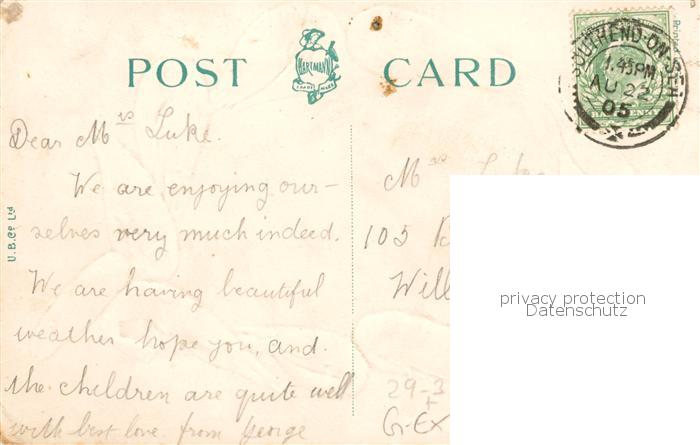 POST CARD
HARTMANN
TRADE MARK
Printed
SOUTHEND-ON-SEA
1.45PM
AU 22
05
U.B.Co Ltd
Dear Mrs Luke.
We are enjoying our-
selves very much indeed.
We are having beautiful
weather hope you, and.
the children are quite well
with best love from George
Mrs Luke
105
Will
privacy protection
Datenschutz
29-3
+
G-EX